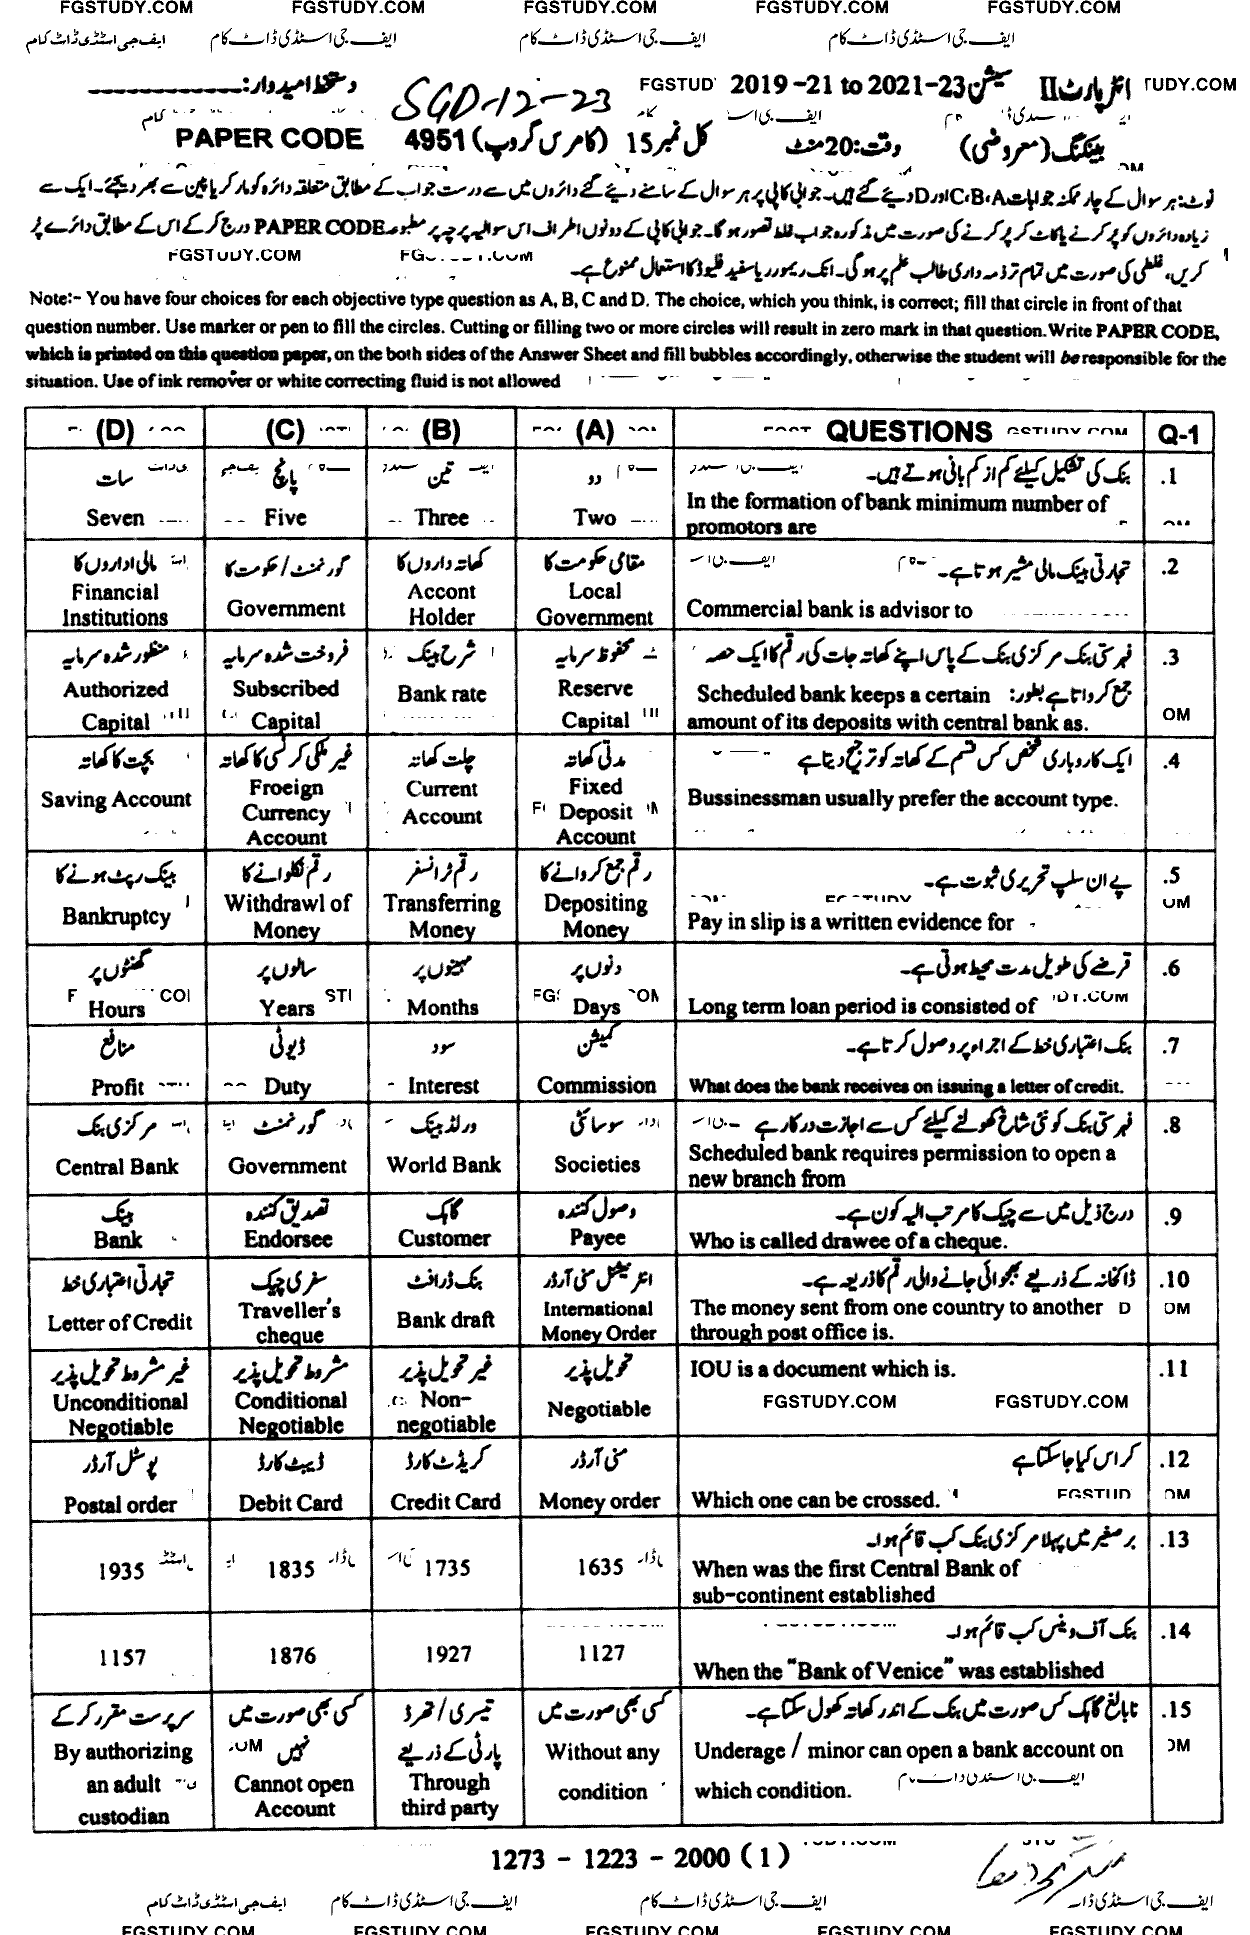 FGSTUDY.COM FGSTUDY.COM FGSTUDY.COM FGSTUDY.COM FGSTUDY.COM
ایف جی اسٹڈی ڈاٹ کام ایف جی اسٹڈی ڈاٹ کام ایف جی اسٹڈی ڈاٹ کام ایف جی اسٹڈی ڈاٹ کام
انٹر پارٹ II سیشن 2019-21 to 2021-23 SGD-12-23 دستخط امیدوار:
بینکنگ (معروضی) وقت: 20 منٹ کل نمبر 15 (کامرس گروپ) PAPER CODE 4951
نوٹ: ہر سوال کے چار ممکنہ جوابات A، B، C اور D دیئے گئے ہیں۔ جوابی کاپی پر ہر سوال کے سامنے دیئے گئے دائروں میں سے درست جواب کے مطابق متعلقہ دائرہ کو مارکر یا پین سے بھر دیجئے۔ ایک سے
زیادہ دائروں کو پُر کرنے یا کاٹ کر پُر کرنے کی صورت میں مذکورہ جواب غلط تصور ہو گا۔ جوابی کاپی کے دونوں اطراف اس سوالیہ پرچہ پر مطبوعہ PAPER CODE درج کر کے اس کے مطابق دائرے پُر
کریں، غلطی کی صورت میں تمام تر ذمہ داری طالب علم پر ہوگی۔ انک ریموور یا سفید فلیوڈ کا استعمال ممنوع ہے۔
FGSTUDY.COM
Note:- You have four choices for each objective type question as A, B, C and D. The choice, which you think, is correct; fill that circle in front of that
question number. Use marker or pen to fill the circles. Cutting or filling two or more circles will result in zero mark in that question. Write PAPER CODE,
which is printed on this question paper, on the both sides of the Answer Sheet and fill bubbles accordingly, otherwise the student will be responsible for the
situation. Use of ink remover or white correcting fluid is not allowed
(D) (C) (B) (A) QUESTIONS Q-1
سات پانچ تین دو بنک کی تشکیل کیلئے کم از کم بانی ہوتے ہیں۔ .1
Seven Five Three Two In the formation of bank minimum number of
promotors are
مالی اداروں کا گورنمنٹ/حکومت کا کھاتہ داروں کا مقامی حکومت کا تجارتی بینک مالی مشیر ہوتا ہے۔ .2
Financial Government Accont Local Commercial bank is advisor to
Institutions Holder Government
منظور شدہ سرمایہ فروخت شدہ سرمایہ شرح بینک محفوظ سرمایہ فہرستی بنک مرکزی بنک کے پاس اپنے کھاتہ جات کی رقم کا ایک حصہ .3
جمع کرواتا ہے بطور:
Authorized Subscribed Bank rate Reserve Scheduled bank keeps a certain
Capital Capital Capital amount of its deposits with central bank as.
بچت کا کھاتہ غیر ملکی کرنسی کا کھاتہ چلت کھاتہ مدتی کھاتہ ایک کاروباری شخص کس قسم کے کھاتہ کو ترجیح دیتا ہے .4
Saving Account Froeign Current Fixed Bussinessman usually prefer the account type.
Currency Account Deposit
Account Account
بینک رپٹ ہونے کا رقم نکلوانے کا رقم ٹرانسفر رقم جمع کروانے کا پے ان سلپ تحریری ثبوت ہے۔ .5
Bankruptcy Withdrawl of Transferring Depositing Pay in slip is a written evidence for
Money Money Money
گھنٹوں پر سالوں پر مہینوں پر دنوں پر قرضے کی طویل مدت محیط ہوتی ہے۔ .6
Hours Years Months Days Long term loan period is consisted of
منافع ڈیوٹی سود کمیشن بنک اعتباری خط کے اجراء پر وصول کرتا ہے۔ .7
Profit Duty Interest Commission What does the bank receives on issuing a letter of credit.
مرکزی بنک گورنمنٹ ورلڈ بینک سوسائٹی فہرستی بنک کو نئی شاخ کھولنے کیلئے کس سے اجازت درکار ہے .8
Central Bank Government World Bank Societies Scheduled bank requires permission to open a
new branch from
بینک تصدیق کنندہ گاہک وصول کنندہ درج ذیل میں سے چیک کا مرتب الیہ کون ہے۔ .9
Bank Endorsee Customer Payee Who is called drawee of a cheque.
تجارتی اعتباری خط سفری چیک بنک ڈرافٹ انٹرنیشنل منی آرڈر ڈاکخانہ کے ذریعے بھجوائی جانے والی رقم کا ذریعہ ہے۔ .10
Letter of Credit Traveller's Bank draft International The money sent from one country to another
cheque Money Order through post office is.
غیر مشروط تحویل پذیر مشروط تحویل پذیر غیر تحویل پذیر تحویل پذیر IOU is a document which is. .11
Unconditional Conditional Non- Negotiable FGSTUDY.COM FGSTUDY.COM
Negotiable Negotiable negotiable
پوسٹل آرڈر ڈیبٹ کارڈ کریڈٹ کارڈ منی آرڈر کراس کیا جا سکتا ہے .12
Postal order Debit Card Credit Card Money order Which one can be crossed.
برصغیر میں پہلا مرکزی بنک کب قائم ہوا۔ .13
1935 1835 1735 1635 When was the first Central Bank of
sub-continent established
بنک آف وینس کب قائم ہوا۔ .14
1157 1876 1927 1127 When the "Bank of Venice" was established
سرپرست مقرر کر کے کسی بھی صورت میں نہیں تیسری/تھرڈ پارٹی کے ذریعے کسی بھی صورت میں نابالغ گاہک کس صورت میں بنک کے اندر کھاتہ کھول سکتا ہے۔ .15
By authorizing Cannot open Through Without any Underage / minor can open a bank account on
an adult Account third party condition which condition.
custodian
1273 - 1223 - 2000 (1)
ایف جی اسٹڈی ڈاٹ کام ایف جی اسٹڈی ڈاٹ کام ایف جی اسٹڈی ڈاٹ کام ایف جی اسٹڈی ڈاٹ
FGSTUDY.COM FGSTUDY.COM FGSTUDY.COM FGSTUDY.COM FGSTUDY.COM